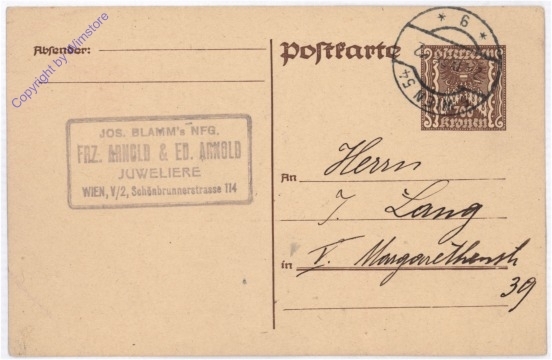 Copyright by Wimstore
Absender:
JOS. BLAMM's NFG.
FRZ. ARNOLD & ED. ARNOLD
JUWELIERE
WIEN, V/2, Schönbrunnerstrasse 114
Postkarte
* 6 *
WIEN 54
Kronen
An
Herrn
J. Lang
in V. Margarethenstr
39